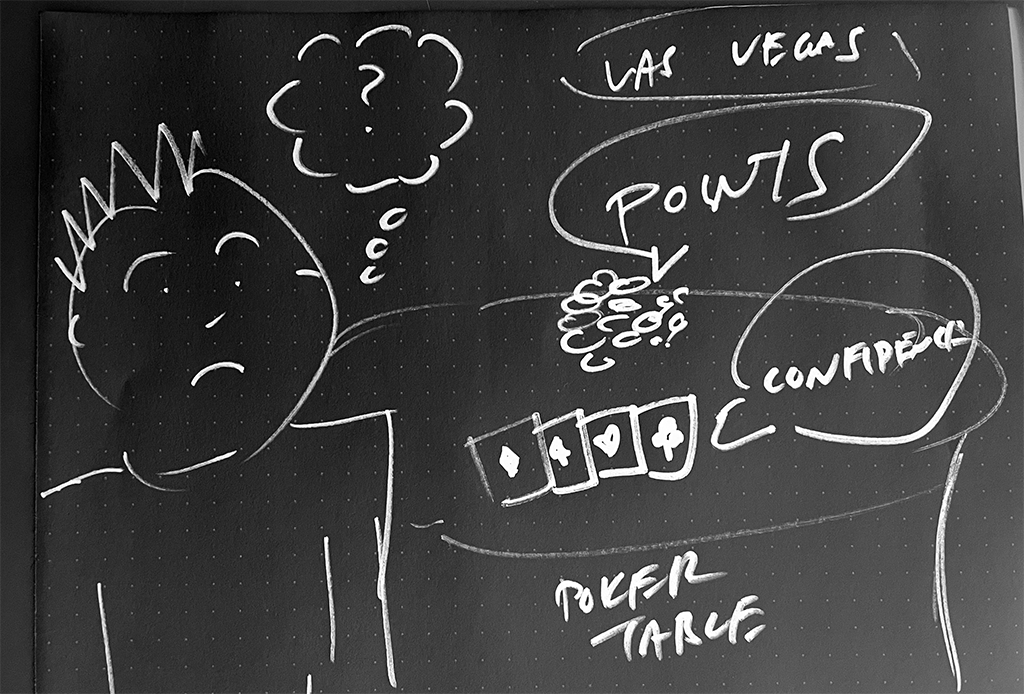 ?
LAS VEGAS
POINTS
CONFIDENCE
POKER
TABLE